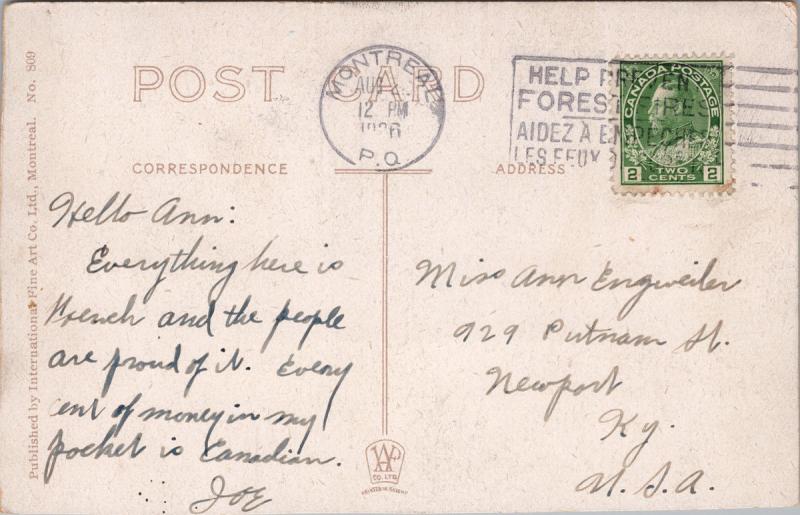 POST CARD
MONTREAL
AUG
12 PM
1926
P.Q.
HELP PREVEN
FOREST FIRES
AIDEZ À EMPECHER
LES FEUX
CANADA POSTAGE
2 TWO CENTS 2
CORRESPONDENCE
ADDRESS
Hello Ann:
Everything here is
French and the people
are proud of it. Every
cent of money in my
pocket is Canadian.
JOE
Miss Ann Engweiler
929 Putnam St.
Newport
Ky.
U.S.A.
Published by International Fine Art Co. Ltd., Montreal. No. 809
CO. LTD.